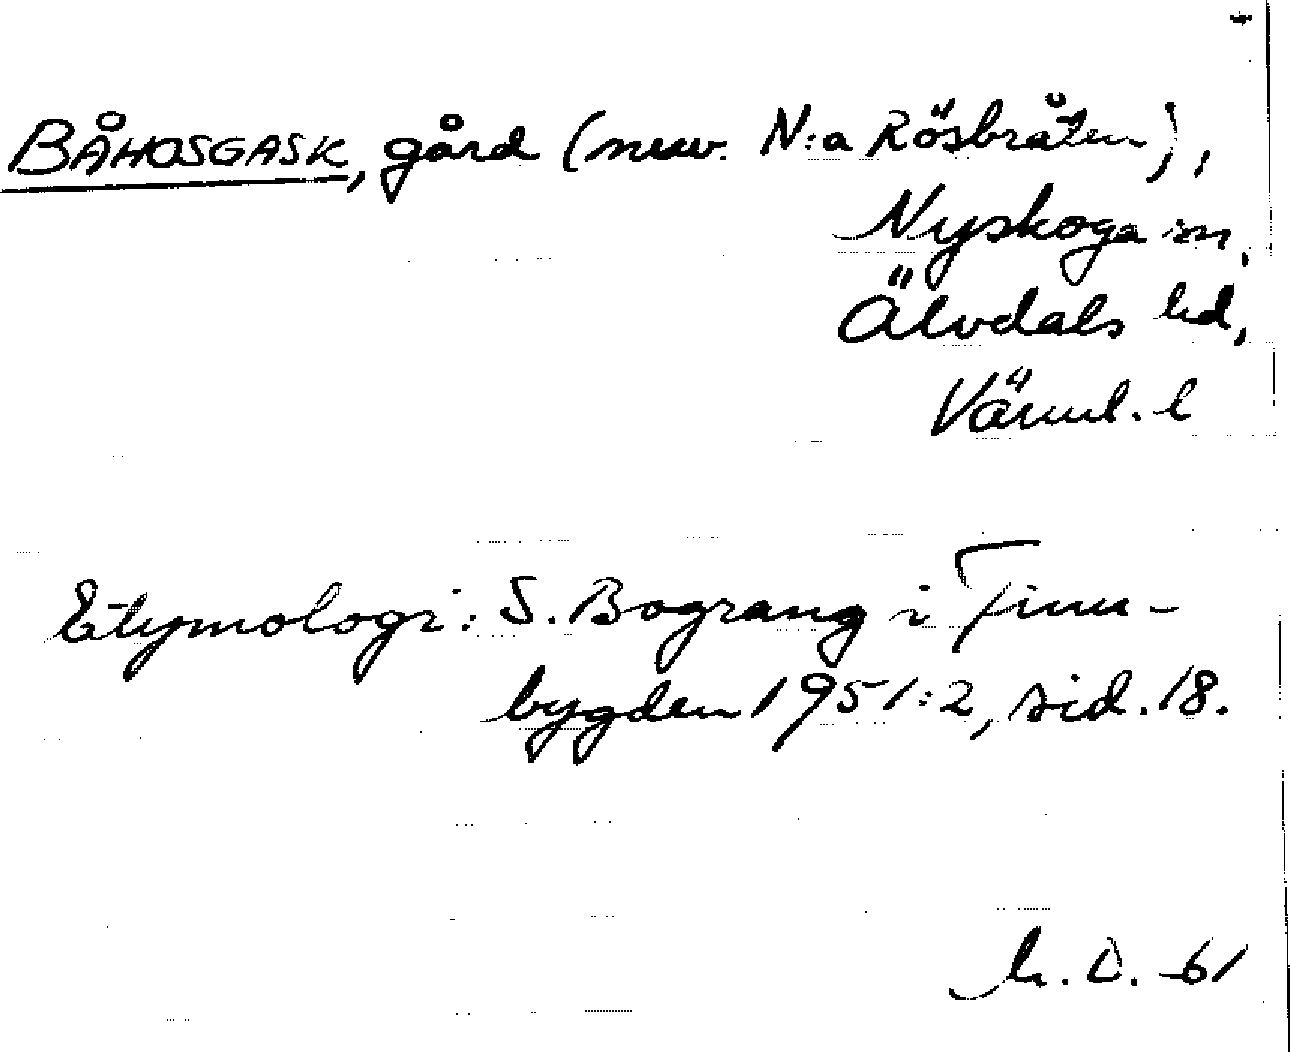 BÅHOSGASK, gård (nuv. N:a Rösbråten),
Nyskoga sn,
Älvdals hd,
Värml. l
Etymologi: S. Bograng i Finn-
bygden 1951:2, sid. 18.
D. 61